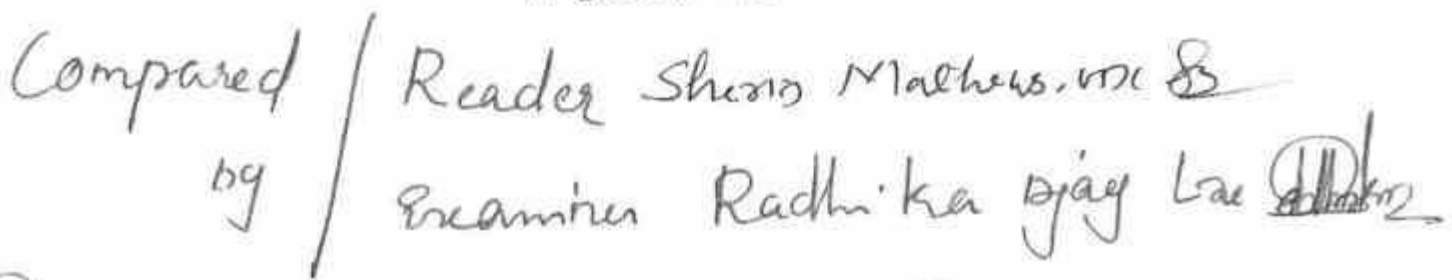 Compared / Reader Sherin Mathews. UDC
by / Examiner Radhika Ajay LDC